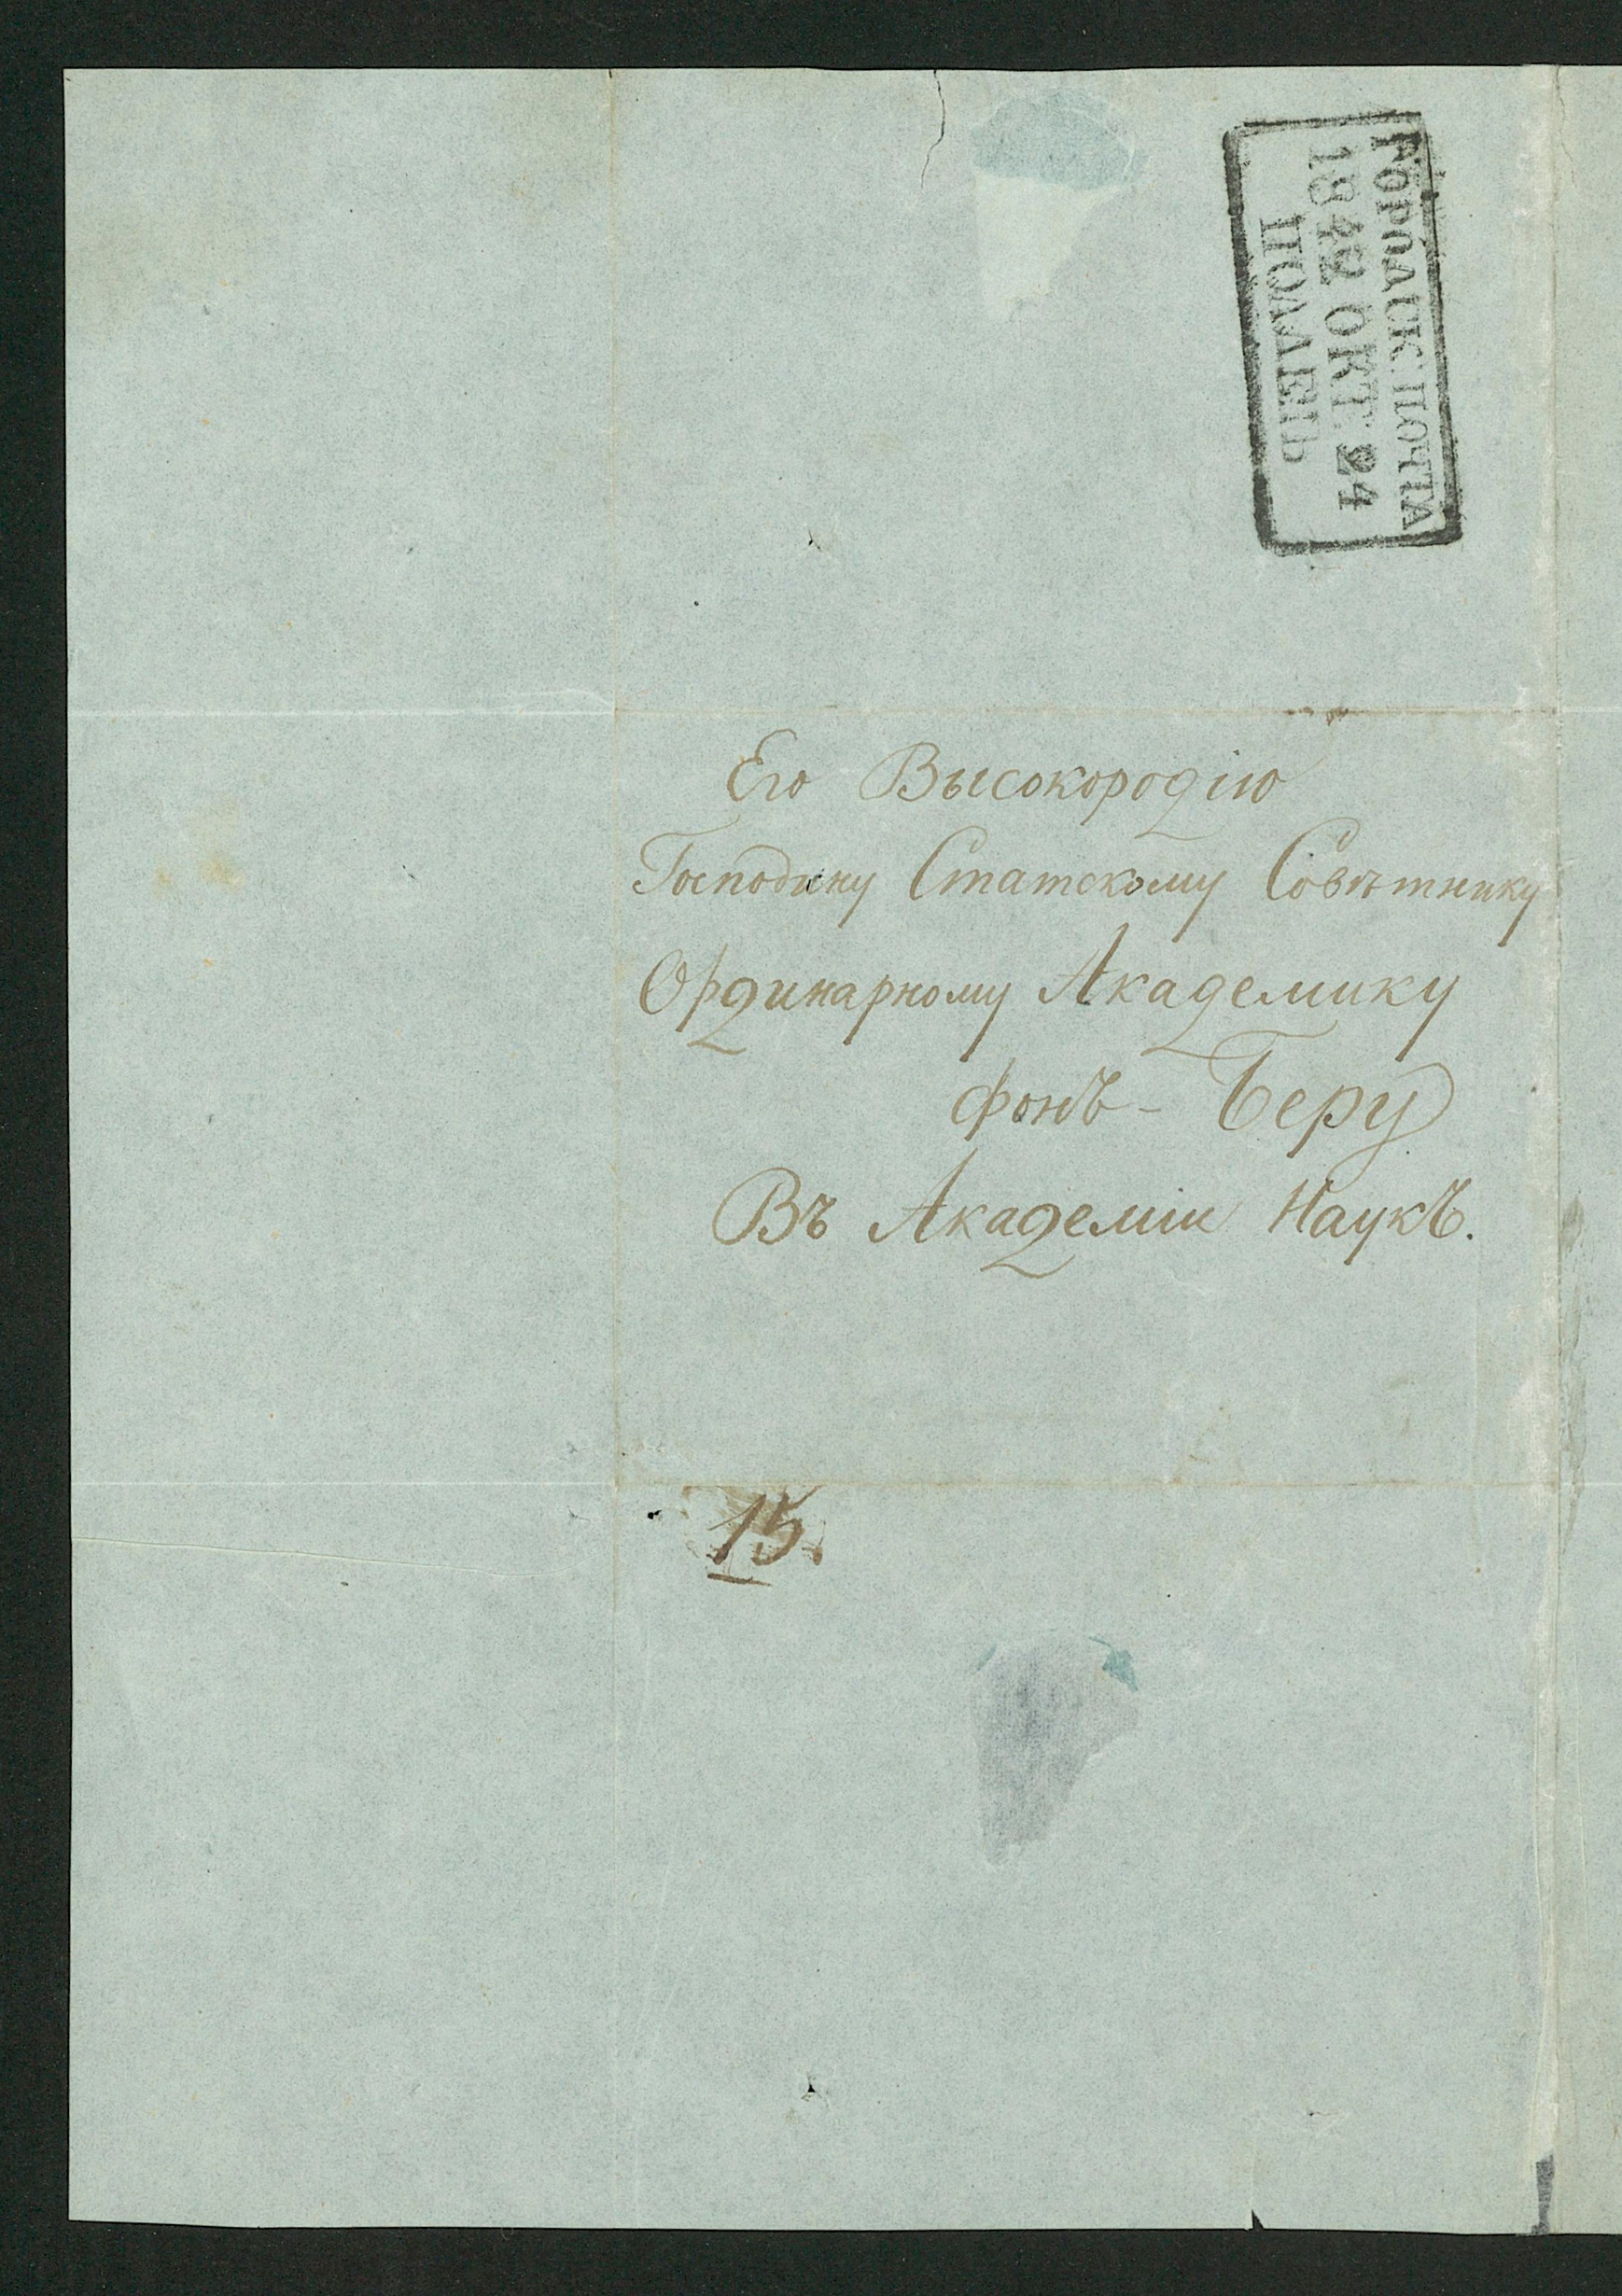 ГОРОДСК. ПОЧТА
1842 ОКТ. 24
ПОЛДЕНЬ
Его Высокородію
Господину Статскому Совѣтнику
Ординарному Академику
фонъ-Беру
Въ Академіи Наукъ.
15.